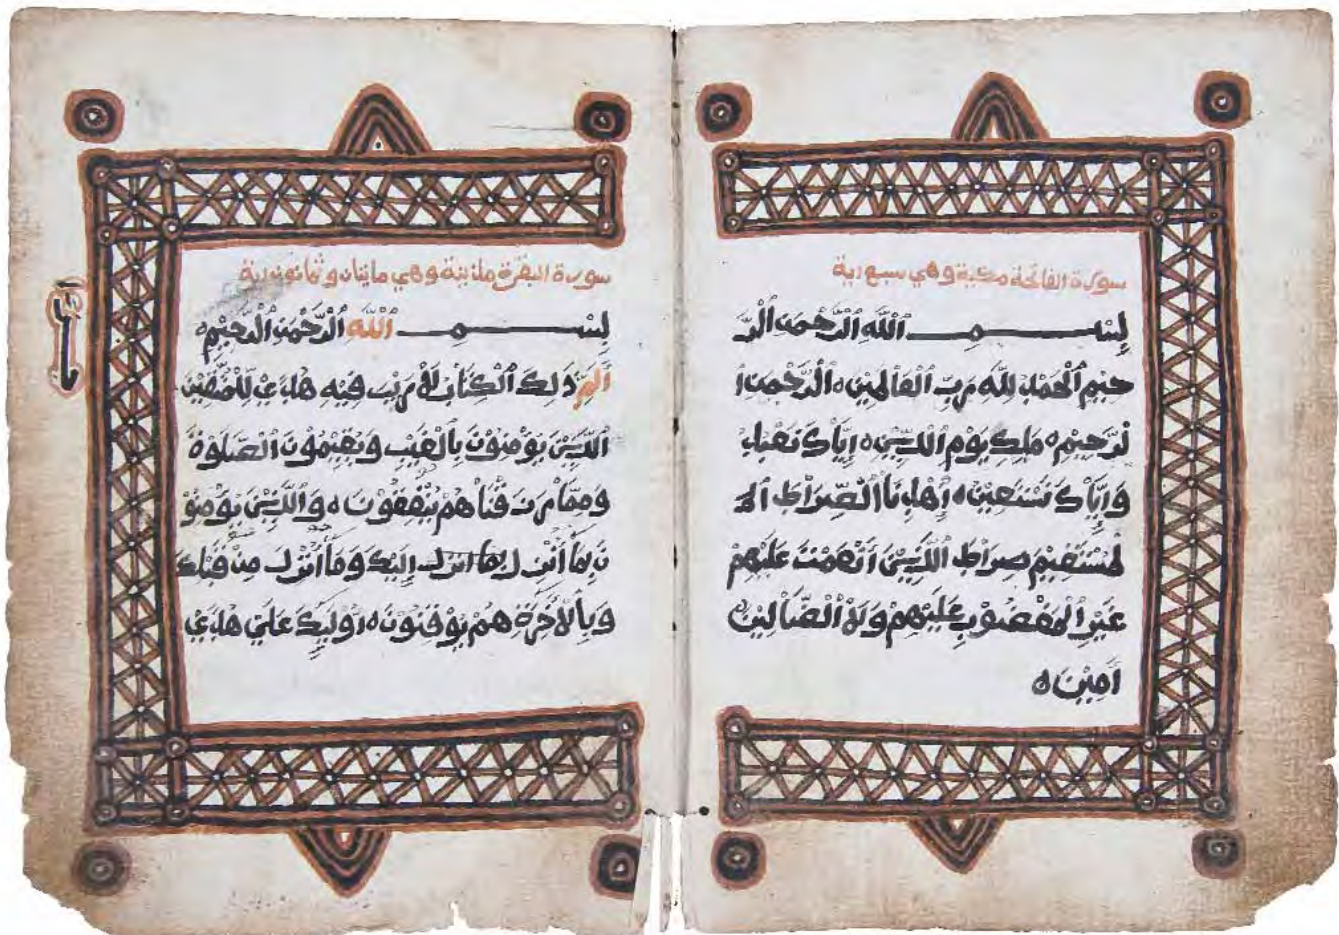 سورة الفاتحة مكية وهي سبع ءاية
بِسْمِ ٱللَّهِ ٱلرَّحْمَنِ ٱلرَّ
حِيمِ ٱلْحَمْدُ لِلَّهِ رَبِّ ٱلْعَالَمِينَ ٱلرَّحْمَنِ ٱ
لرَّحِيمِ مَلِكِ يَوْمِ ٱلدِّينِ إِيَّاكَ نَعْبُدُ
وَإِيَّاكَ نَسْتَعِينُ إِهْدِنَا ٱلصِّرَاطَ ٱلـ
ـمُسْتَقِيمَ صِرَاطَ ٱلَّذِينَ أَنْعَمْتَ عَلَيْهِمْ
غَيْرِ ٱلْمَغْضُوبِ عَلَيْهِمْ وَلَا ٱلضَّالِّينَ
ءَامِينَ
سورة البقرة مدنية وهي مايتان وثمانون ءاية
بِسْمِ ٱللَّهِ ٱلرَّحْمَنِ ٱلرَّحِيمِ
أَلَمِّ ذَلِكَ ٱلْكِتَابُ لَا رَيْبَ فِيهِ هُدًى لِلْمُتَّقِينَ
ٱلَّذِينَ يُؤْمِنُونَ بِٱلْغَيْبِ وَيُقِيمُونَ ٱلصَّلَوٰةَ
وَمِمَّا رَزَقْنَاهُمْ يُنْفِقُونَ وَٱلَّذِينَ يُؤْمِنُو
نَ بِمَا أُنْزِلَ بِمَا أُنْزِلَ إِلَيْكَ وَمَا أُنْزِلَ مِنْ قَبْلِكَ
وَبِٱلْأَخِرَةِ هُمْ يُوقِنُونَ أُوْلَئِكَ عَلَى هُدًى